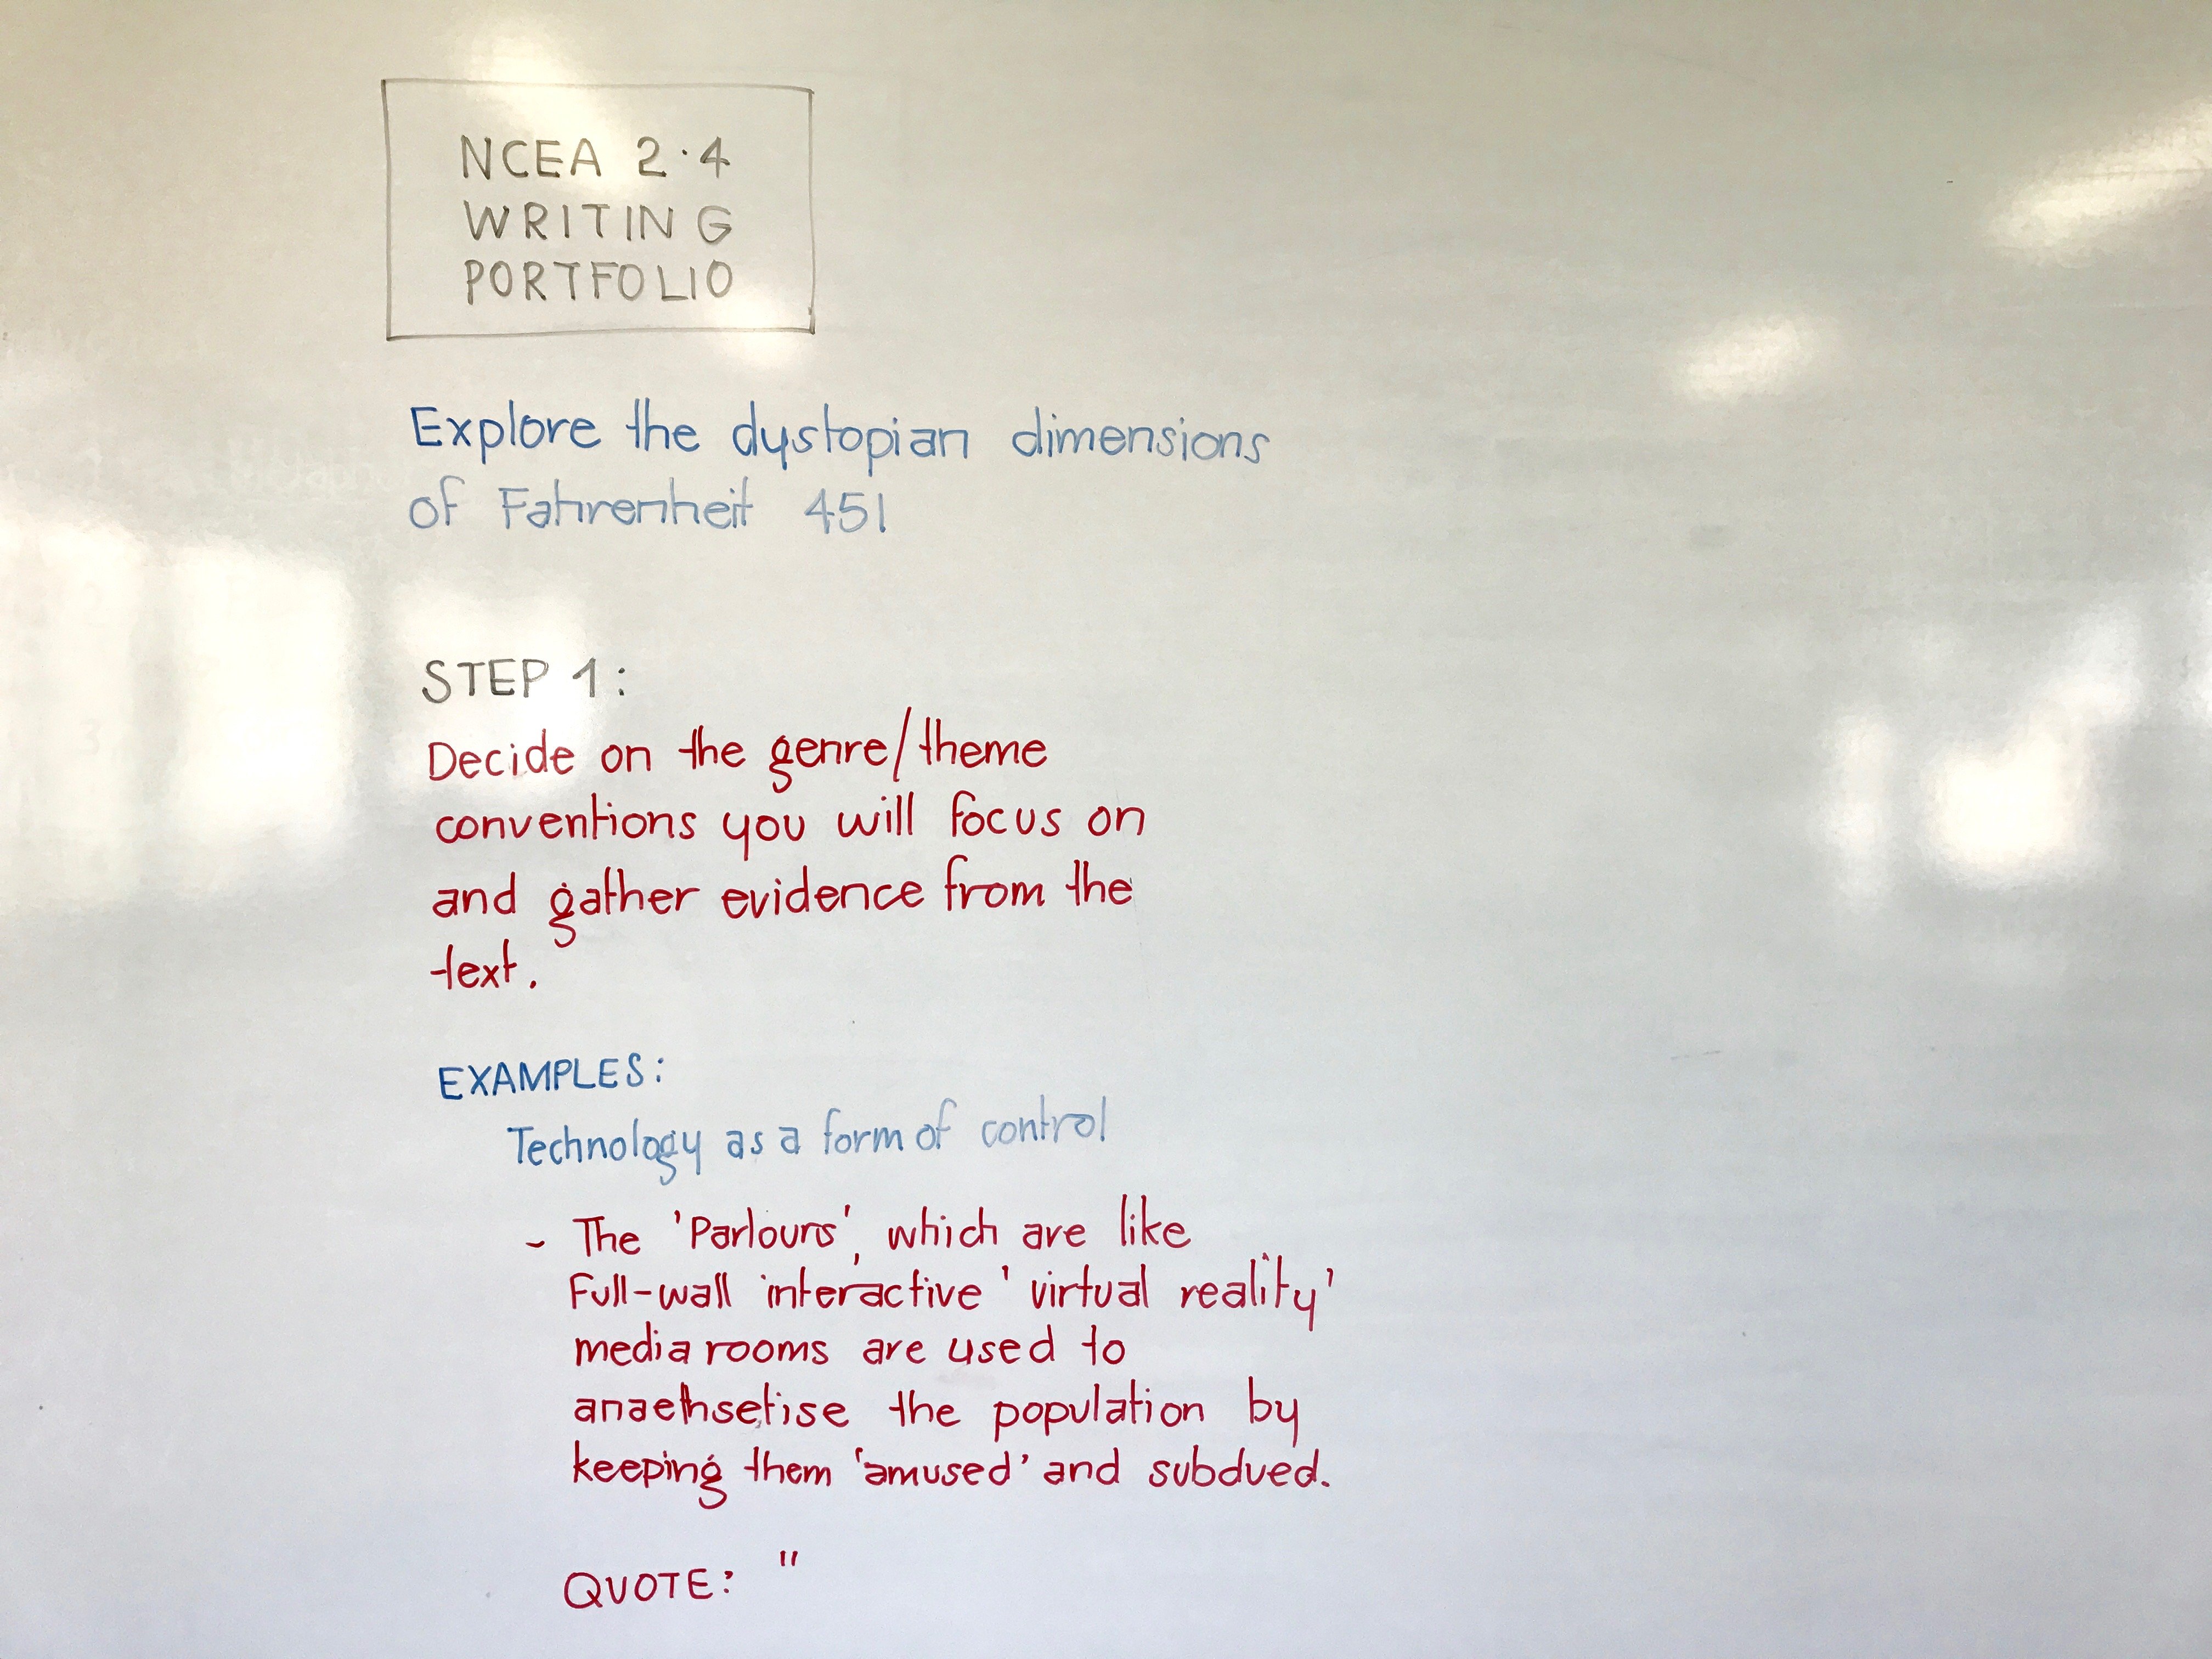 NCEA 2.4
WRITING
PORTFOLIO
Explore the dystopian dimensions
of Fahrenheit 451
STEP 1:
Decide on the genre/theme
conventions you will focus on
and gather evidence from the
text.
EXAMPLES:
Technology as a form of control
- The 'Parlours', which are like
Full-wall interactive 'virtual reality'
media rooms are used to
anaethsetise the population by
keeping them 'amused' and subdued.
QUOTE: "